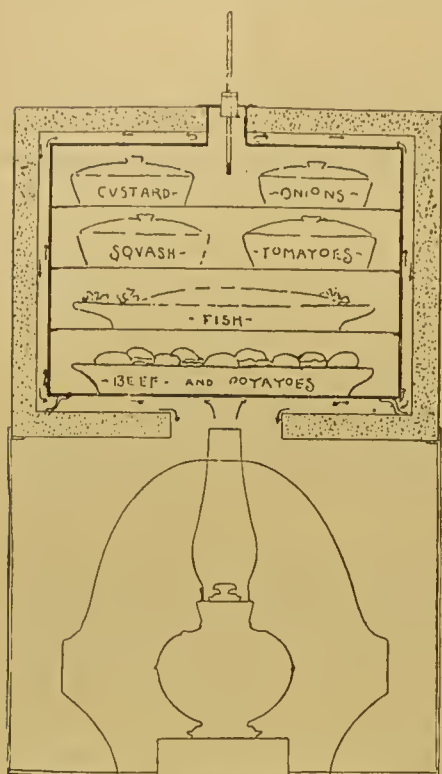 CUSTARD- -ONIONS-
SQVASH- -TOMATOES-
- FISH -
-BEEF- AND POTATOES